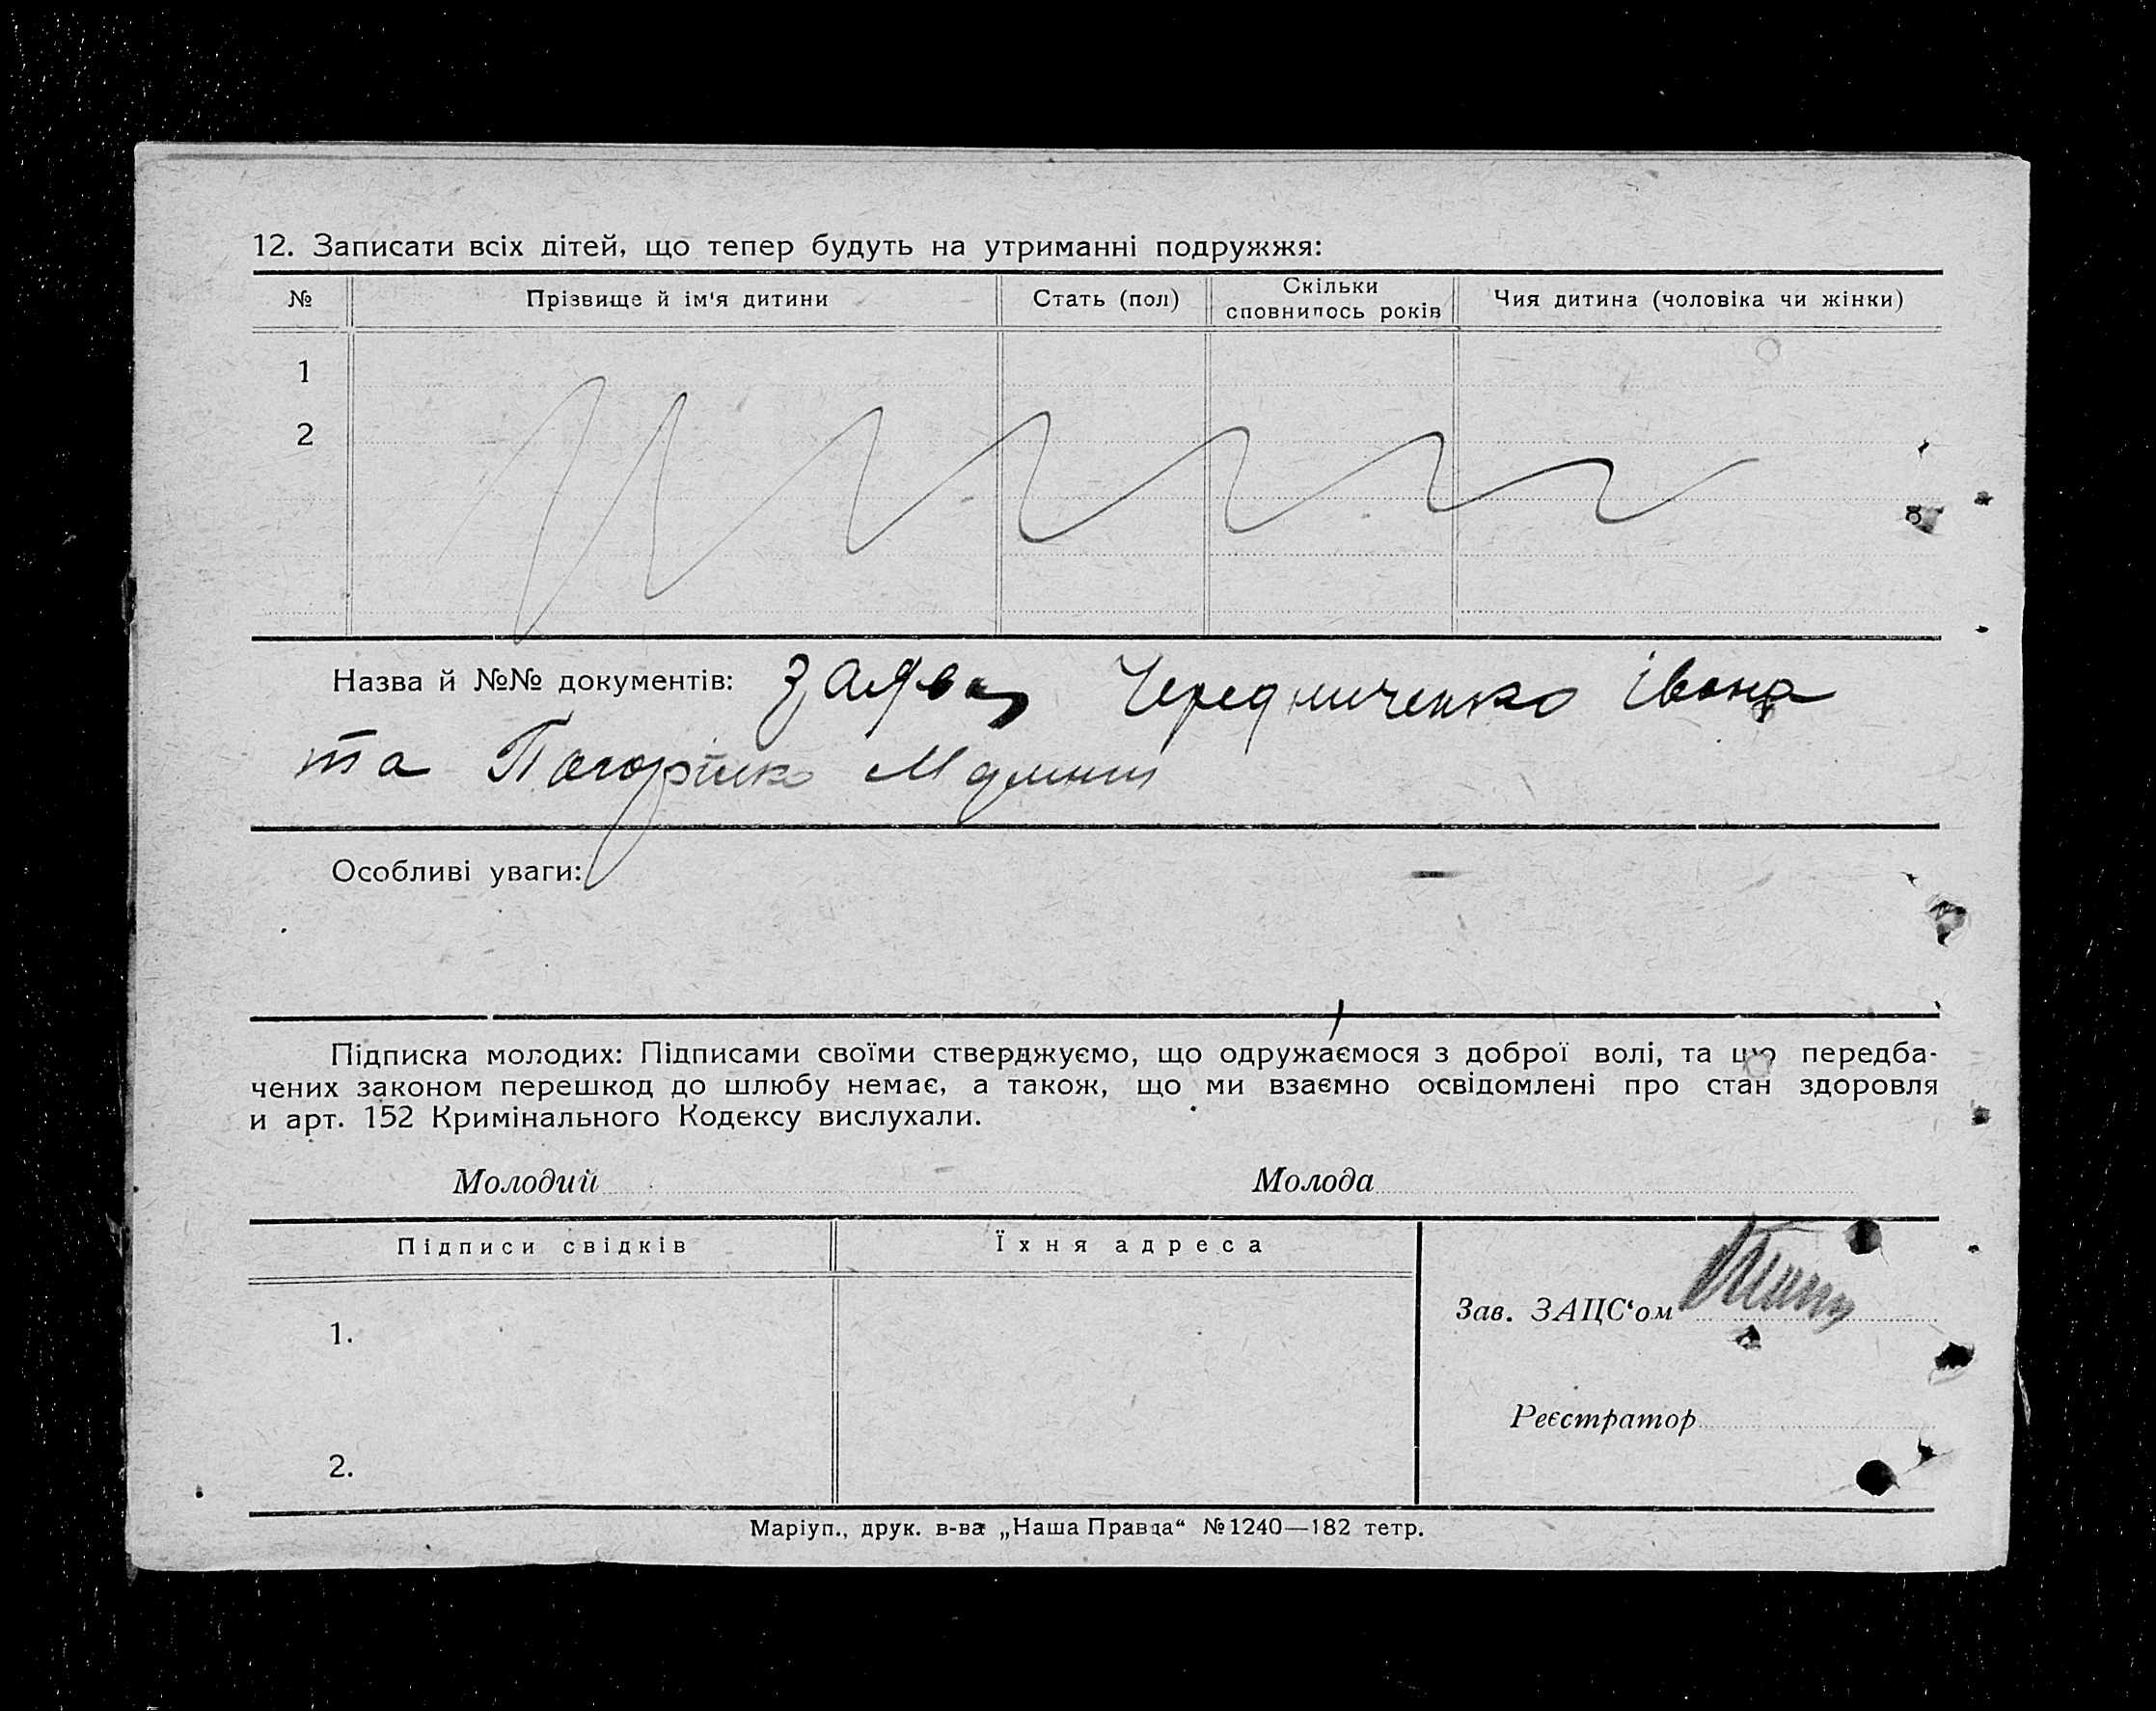 12. Записати всіх дітей, що тепер будуть на утриманні подружжя:
№ Прізвище й ім'я дитини Стать (пол) Скільки сповнилось років Чия дитина (чоловіка чи жінки)
1
2
Назва й №№ документів: заява Чередниченко Івана
та
Особливі уваги: —
Підписка молодих: Підписами своїми стверджуємо, що одружаємося з доброї волі, та що передба-
чених законом перешкод до шлюбу немає, а також, що ми взаємно освідомлені про стан здоровля
и арт. 152 Кримінального Кодексу вислухали.
Молодий Молода
Підписи свідків Їхня адреса
Зав. ЗАЦС‘ом
1.
Реєстратор
2.
Маріуп., друк. в-ва „Наша Правда“ №1240—182 тетр.